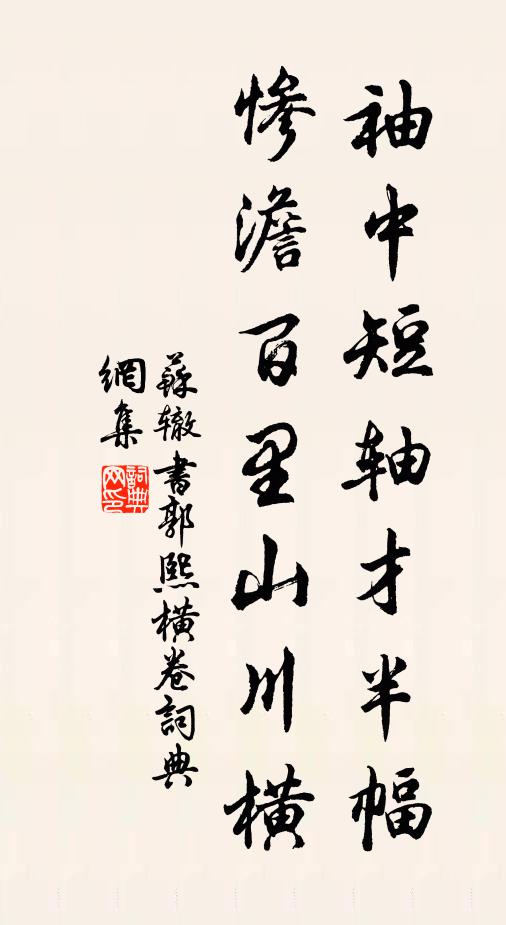 袖中短轴才半幅
惨澹百里山川横
蘇辙書郭熙横卷詞典
網集
詞典網印